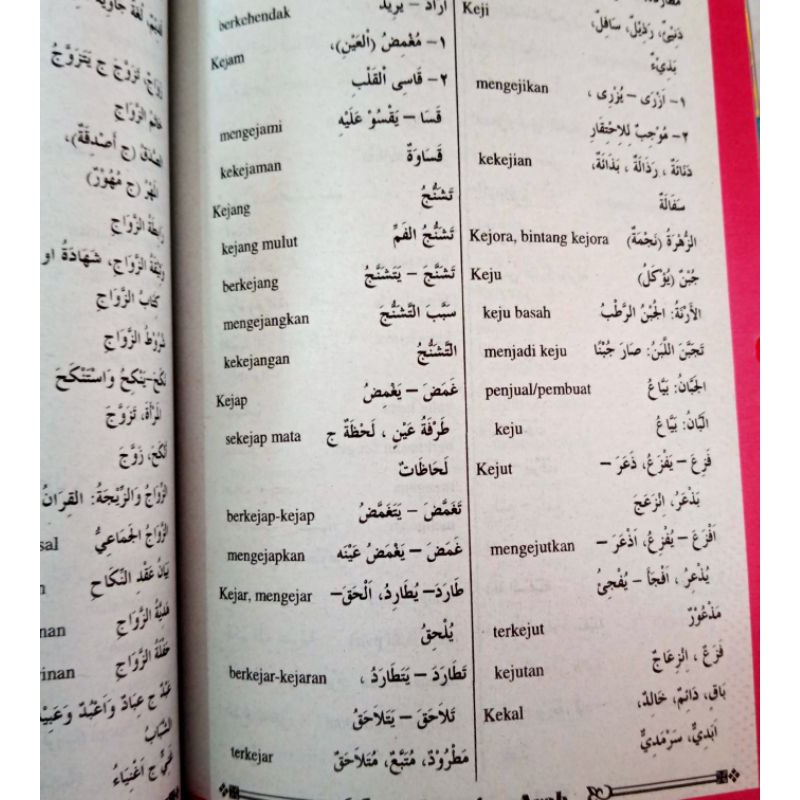 berkehendak أَرَادَ – يُرِيدُ
Kejam ١– مُغْمِضُ (الْعَيْنِ)،
٢– قَاسِى الْقَلْبِ
mengejami قَسَا – يَقْسُوْ عَلَيْهِ
kekejaman قَسَاوَةٌ
Kejang تَشَنُّجُ
kejang mulut تَشَنُّجُ الفَمِّ
berkejang تَشَنَّجَ – يَتَشَنَّجُ
mengejangkan سَبَّبَ التَّشَنُّجَ
kekejangan التَّشَنُّجُ
Kejap غَمَضَ – يَغْمِضُ
sekejap mata طَرْفَةُ عَيْنٍ ، لَحْظَةٌ ج
لَحَاظَاتٌ
berkejap-kejap تَغَمَّضَ – يَتَغَمَّضُ
mengejapkan غَمَضَ – يَغْمَضُ عَيْنَه
Kejar, mengejar طَارَدَ– يُطَارِدُ، اَلْحَقَ–
يُلْحِقُ
berkejar-kejaran تَطَارَدَ – يَتَطَارَدُ ،
تَلَاحَقَ – يَتَلَاحَقُ
terkejar مَطْرُوْدٌ، مُتَّبَعٌ، مُتَلَاحَقٌ
Keji دَنِئٌ، رَذِيْلٌ، سَافِلٌ،
بَذِيْءٌ
mengejikan ١– اَزْرَى – يُزْرِى ،
٢– مُوْجِبٌ لِلِاحْتِقَارِ
kekejian دَنَائَةٌ ، رَذَالَةٌ ، بَذَائَةٌ،
سَفَالَةٌ
Kejora, bintang kejora الزُّهْرَةُ (نَجْمَةٌ)
Keju جُبْنٌ (يُؤْكَلُ)
keju basah الأَرْنَةُ: الجُبْنُ الرَّطْبُ
menjadi keju تَجَبَّنَ اللَّبَنُ: صَارَ جُبْنًا
penjual/pembuat الجَبَّانُ: بَيَّاعُ
keju البَّانُ: بَيَّاعُ
Kejut فَزِعَ – يَفْزَعُ، ذَعَرَ –
يَذْعَرُ، اِنْزَعَجَ
mengejutkan اَفْزَعَ – يُفْزِعُ، اَذْعَرَ –
يُذْعِرُ ، اَفْجَأَ – يُفْجِئُ
terkejut مَذْعُوْرٌ
kejutan فَزَعٌ ، اِنْزِعَاجٌ
Kekal بَاقٍ، دَائِمٌ، خَالِدٌ،
اَبَدِيٌّ، سَرْمَدِيٌّ
تَزَوَّجَ ج يَتَزَوَّجُ
خَاتَمُ الزَّوَاجِ
(ج أَصْدِقَةٌ)،
(ج مُهُوْرٌ)
رَابِطَةُ الزَّوَاجِ
وَثِيْقَةُ الزَّوَاجِ، شَهَادَةُ او
كِتَابُ الزَّوَاجِ
شُرُوْطُ الزَّوَاجِ
نَكَحَ–يَنْكِحُ وَاسْتَنْكَحَ
المَرْأَةَ، تَزَوَّجَ
أَنْكَحَ، زَوَّجَ
الزَّوَاجُ وَالزِّيْجَةُ: القِرَانُ
sal الزَّوَاجُ الجَمَاعِيُّ
بَيَانُ عَقْدِ النِّكَاحِ
nan الزَّوَاجِ
inan حَفْلَةُ الزَّوَاجِ
عَبْدٌ ج عِبَادٌ وَاَعْبُدٌ وَعَبِيْدٌ
الشَّبَابُ
غَنِيٌّ ج اَغْنِيَاءُ